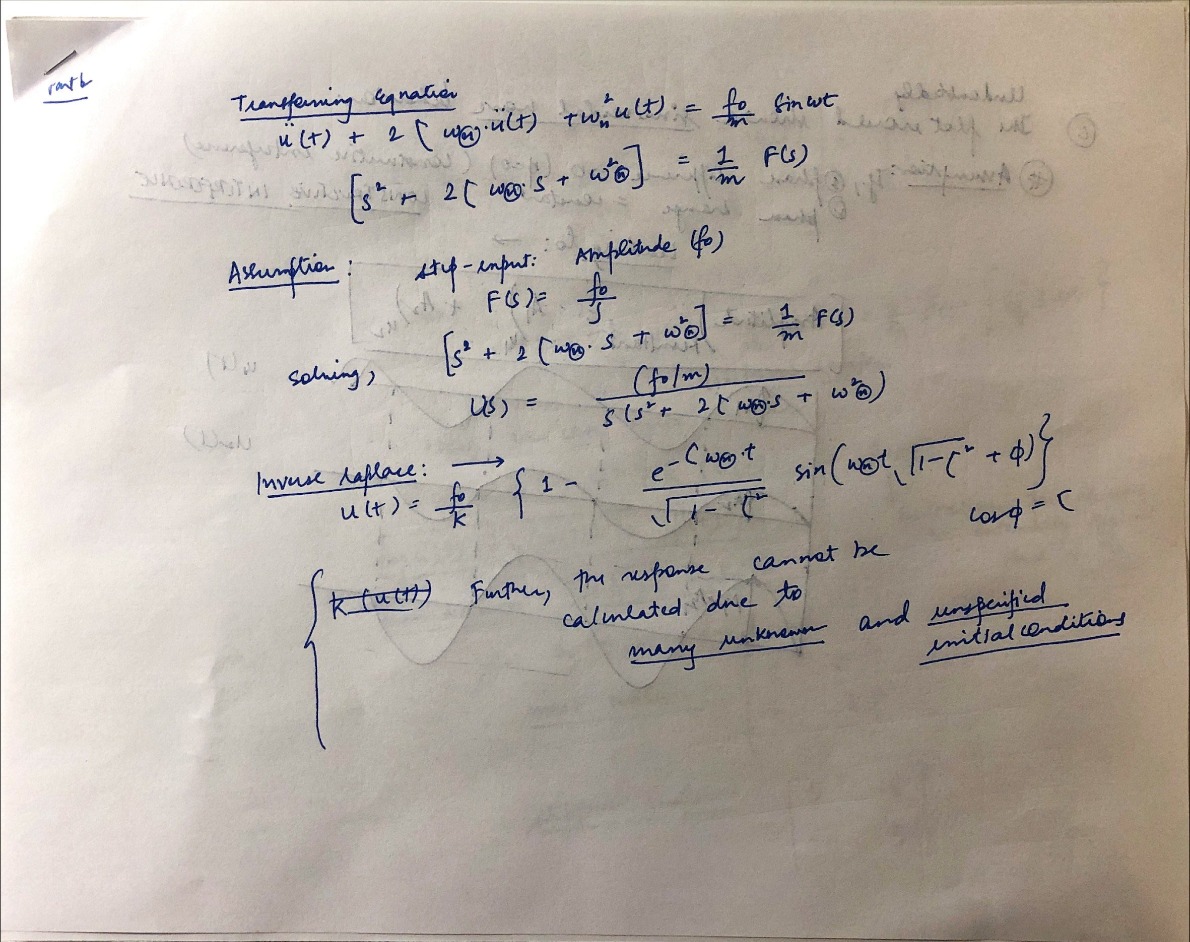 Part b
Transferring Equation
ü(t) + 2 ζ ω(n)·ü(t) + ωn² u(t) = f0/m Sin ωt
[s² + 2ζ ω(n)·s + ω²(n)] = 1/m F(s)
Assumption: step-input: Amplitude (f0)
F(s) = f0/s
solving, [s² + 2ζω(n)·s + ω²(n)] = 1/m F(s)
U(s) = (f0/m) / s(s² + 2ζ ω(n)·s + ω²(n))
Inverse Laplace: →
u(t) = f0/k { 1 - e^-ζω(n)·t / √1-ζ² sin(ω(n)t √1-ζ² + φ)}
cosφ = ζ
k (u(t)) Further, the response cannot be
calculated due to
many unknown and unspecified
initial conditions